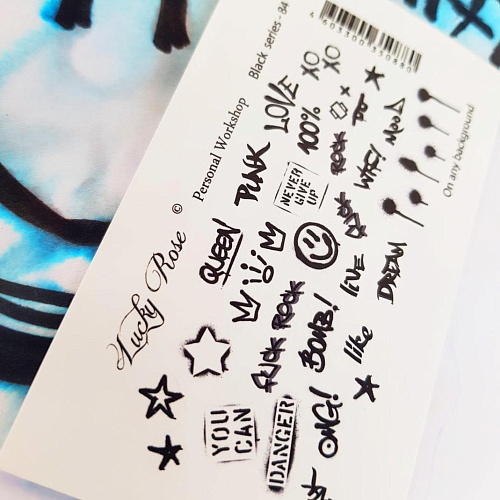 Lucky Rose
© Personal Workshop
Black series - 84
4 603300 350890
On any background
XO
XO
LOVE
100%
ROCK
PUNK
NEVER
GIVE
UP
WTF!
QUEEN
LIVE
DREAM
FUCK ROCK
BOMB!
like
YOU
CAN
DANGER
OMG!